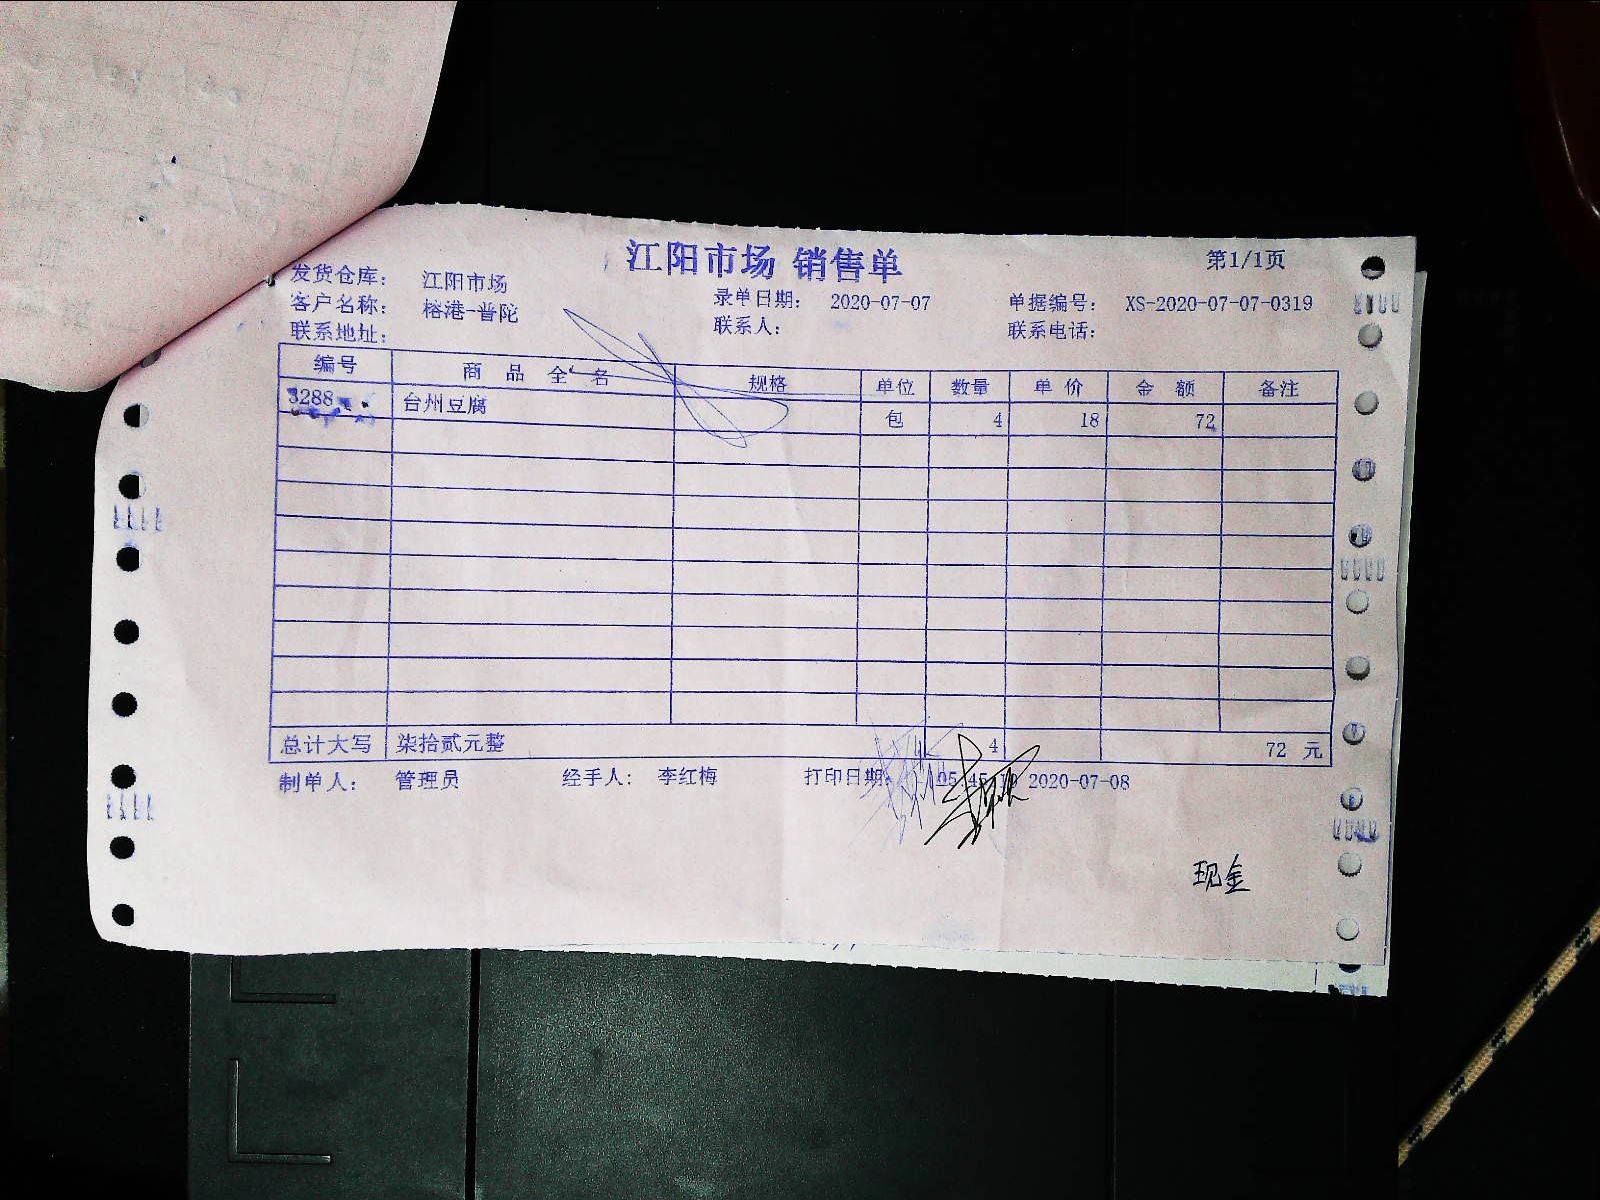 江阳市场 销售单
第1/1页
发货仓库: 江阳市场
客户名称: 榕港-普陀 录单日期: 2020-07-07 单据编号: XS-2020-07-07-0319
联系地址: 联系人: 联系电话:
编号 商品全名 规格 单位 数量 单价 金额 备注
3288 台州豆腐 包 4 18 72
总计大写 柒拾贰元整 4 72 元
制单人: 管理员 经手人: 李红梅 打印日期: 2020-07-08
现金